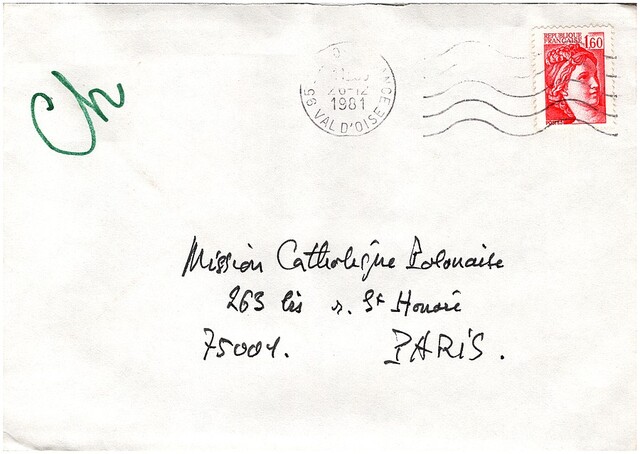 REPUBLIQUE
FRANÇAISE 1,60
26-12
1981
95 VAL D'OISE
Ch
Mission Catholique Polonaise
263 bis r. St Honoré
75001.
PARIS.